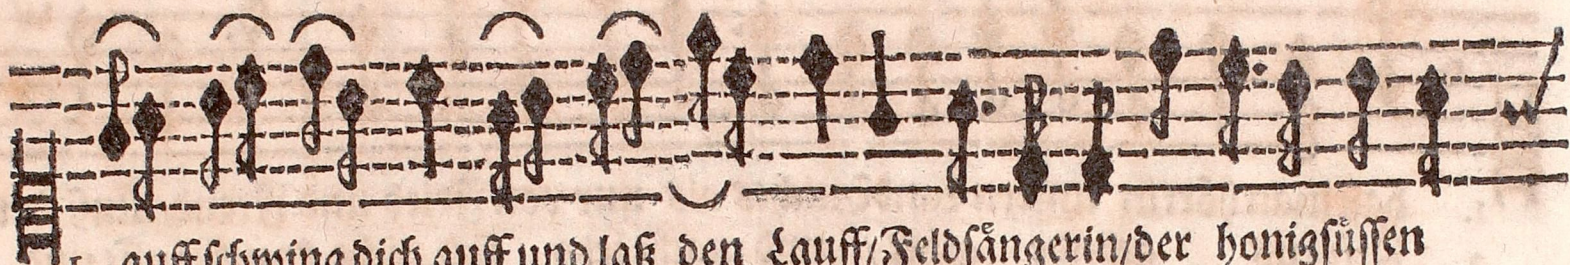 auff schwing dich auff und laß den Lauff/Feldsängerin/der honigsüssen